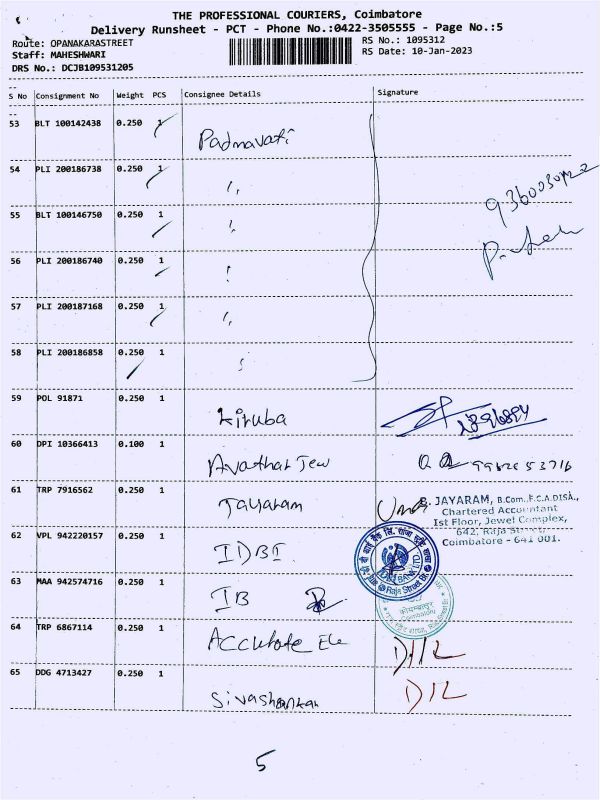 THE PROFESSIONAL COURIERS, Coimbatore
Delivery Runsheet - PCT - Phone No.:0422-3505555 - Page No.:5
Route: OPANAKARASTREET
Staff: MAHESHWARI
DRS No.: DCJB109531205
RS No.: 1095312
RS Date: 10-Jan-2023
S No Consignment No Weight PCS Consignee Details Signature
53 BLT 100142438 0.250 1 Padmavati
54 PLI 200186738 0.250 1 "
55 BLT 100146750 0.250 1 "
56 PLI 200186740 0.250 1 "
57 PLI 200187168 0.250 1 "
58 PLI 200186858 0.250 1 "
59 POL 91871 0.250 1 Kiruba
60 DPI 10366413 0.100 1 Avathar Jew
61 TRP 7916562 0.250 1 Jayaram
B. JAYARAM, B.Com.,F.C.A.DISA.,
Chartered Accountant
Ist Floor, Jewel Complex,
642, Raja Street
Coimbatore - 641 001.
62 VPL 942220157 0.250 1 IDBI
63 MAA 942574716 0.250 1 IB
कोयम्बतूर
Coimbatore
64 TRP 6867114 0.250 1 Accurate Ele D/L
65 DDG 4713427 0.250 1 Sivashankar D/L
5